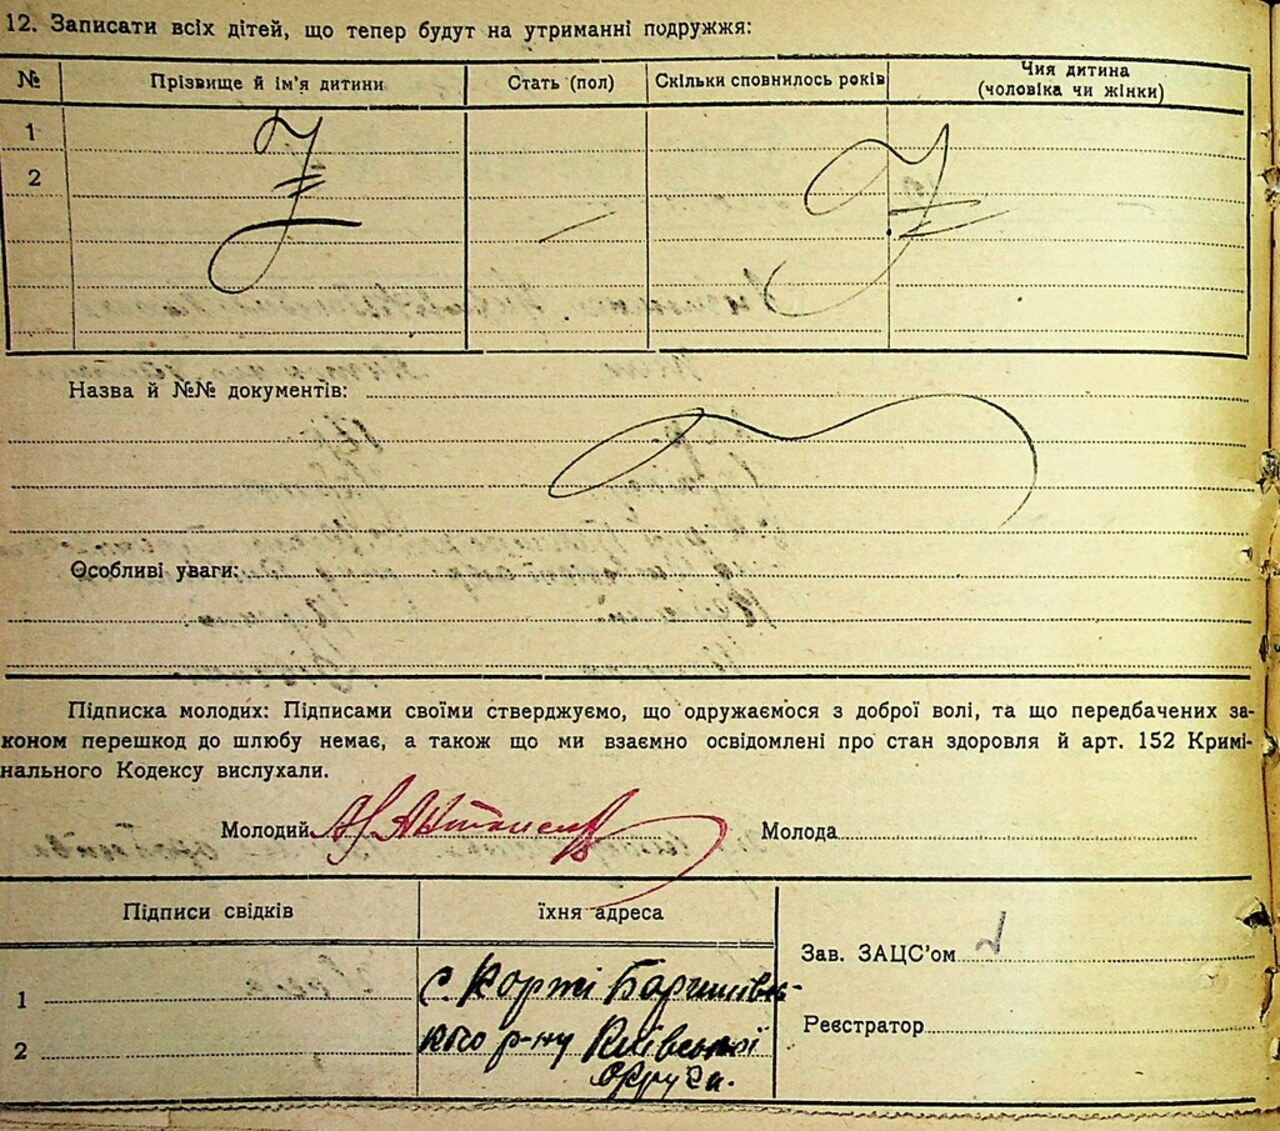 12. Записати всіх дітей, що тепер будут на утриманні подружжя:
№ Прізвище й ім'я дитини Стать (пол) Скільки сповнилось років Чия дитина
(чоловіка чи жінки)
1
2
Назва й №№ документів:
Особливі уваги:
Підписка молодих: Підписами своїми стверджуємо, що одружаємося з доброї волі, та що передбачених за-
коном перешкод до шлюбу немає, а також що ми взаємно освідомлені про стан здоровля й арт. 152 Кримі-
нального Кодексу вислухали.
Молодий Молода
Підписи свідків їхня адреса
Зав. ЗАЦС'ом
1 с. Коржі Баришівсь-
Реєстратор
2 кого р-ну Київської
округи.